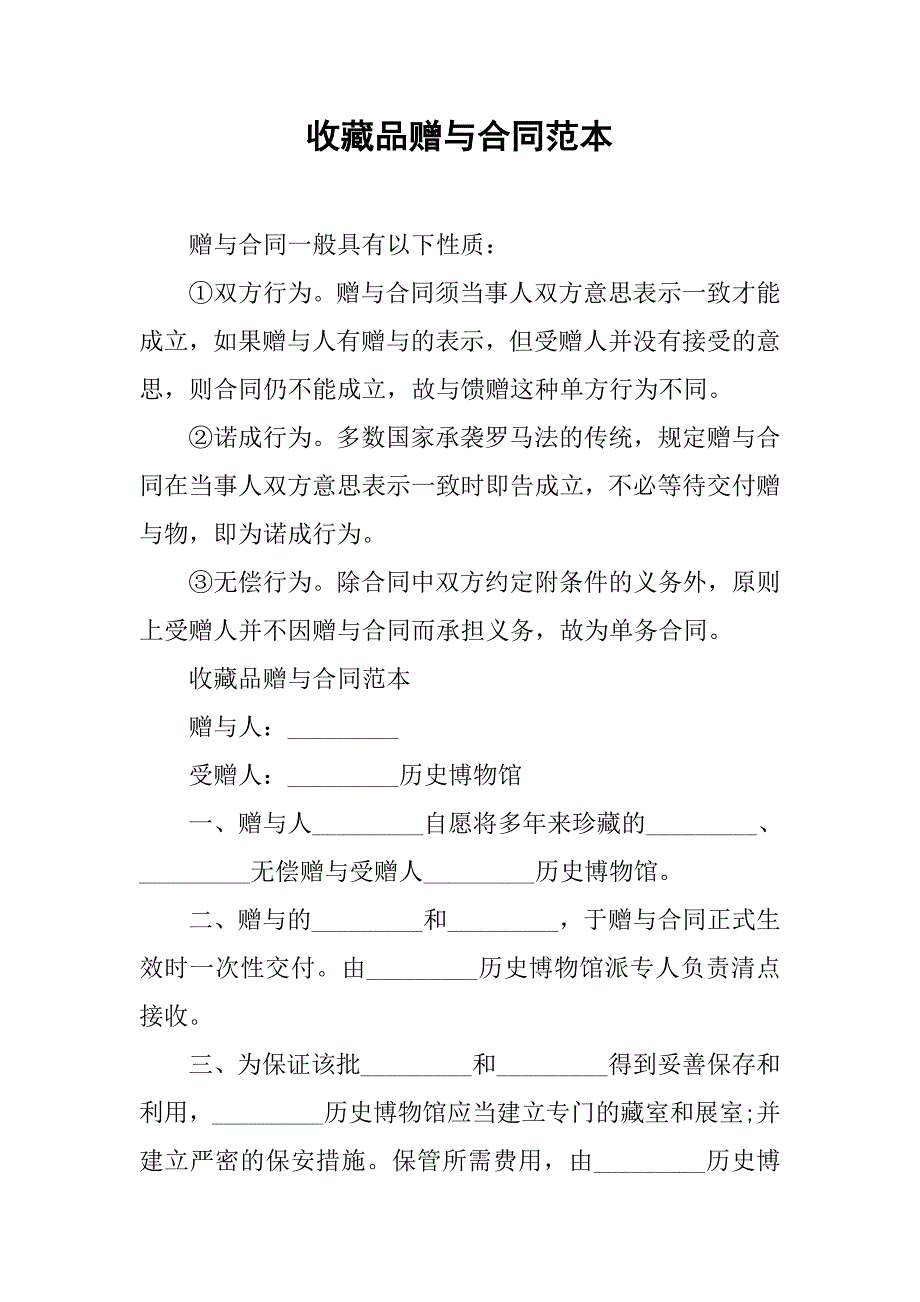 收藏品赠与合同范本
赠与合同一般具有以下性质：
①双方行为。赠与合同须当事人双方意思表示一致才能
成立，如果赠与人有赠与的表示，但受赠人并没有接受的意
思，则合同仍不能成立，故与馈赠这种单方行为不同。
②诺成行为。多数国家承袭罗马法的传统，规定赠与合
同在当事人双方意思表示一致时即告成立，不必等待交付赠
与物，即为诺成行为。
③无偿行为。除合同中双方约定附条件的义务外，原则
上受赠人并不因赠与合同而承担义务，故为单务合同。
收藏品赠与合同范本
赠与人：_________
受赠人：_________历史博物馆
一、赠与人_________自愿将多年来珍藏的_________、
_________无偿赠与受赠人_________历史博物馆。
二、赠与的_________和_________，于赠与合同正式生
效时一次性交付。由_________历史博物馆派专人负责清点
接收。
三、为保证该批_________和_________得到妥善保存和
利用，_________历史博物馆应当建立专门的藏室和展室;并
建立严密的保安措施。保管所需费用，由_________历史博